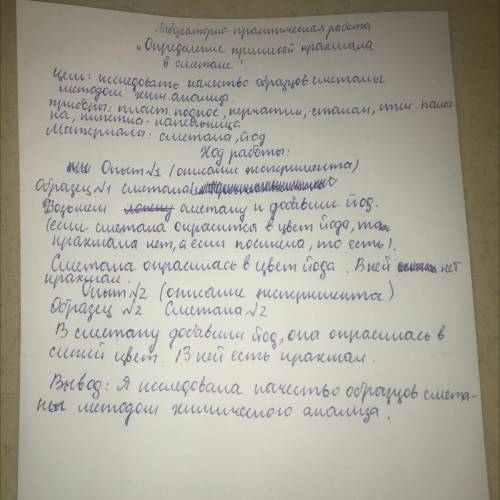 Лабораторно-практическая работа
"Определение примесей крахмала
в сметане".
Цель: исследовать качество образцов сметаны
методом хим. анализа.
приборы: пласт. поднос, перчатки, стакан, стек. палоч-
ка, пипетка-капельница
Материалы: сметана, йод
Ход работы:
Опыт №1 (описание эксперимента)
Образец №1 сметана
Возьмем сметану и добавим йод.
(если сметана окрасится в цвет йода, то
крахмала нет, а если посинела, то есть).
Сметана окрасилась в цвет йода. В ней нет
крахмал.
Опыт №2 (описание эксперимента)
Образец №2 Сметана №2
В сметану добавили йод, она окрасилась в
синий цвет. В ней есть крахмал.
Вывод: Я исследовала качество образцов смета-
ны методом химического анализа.